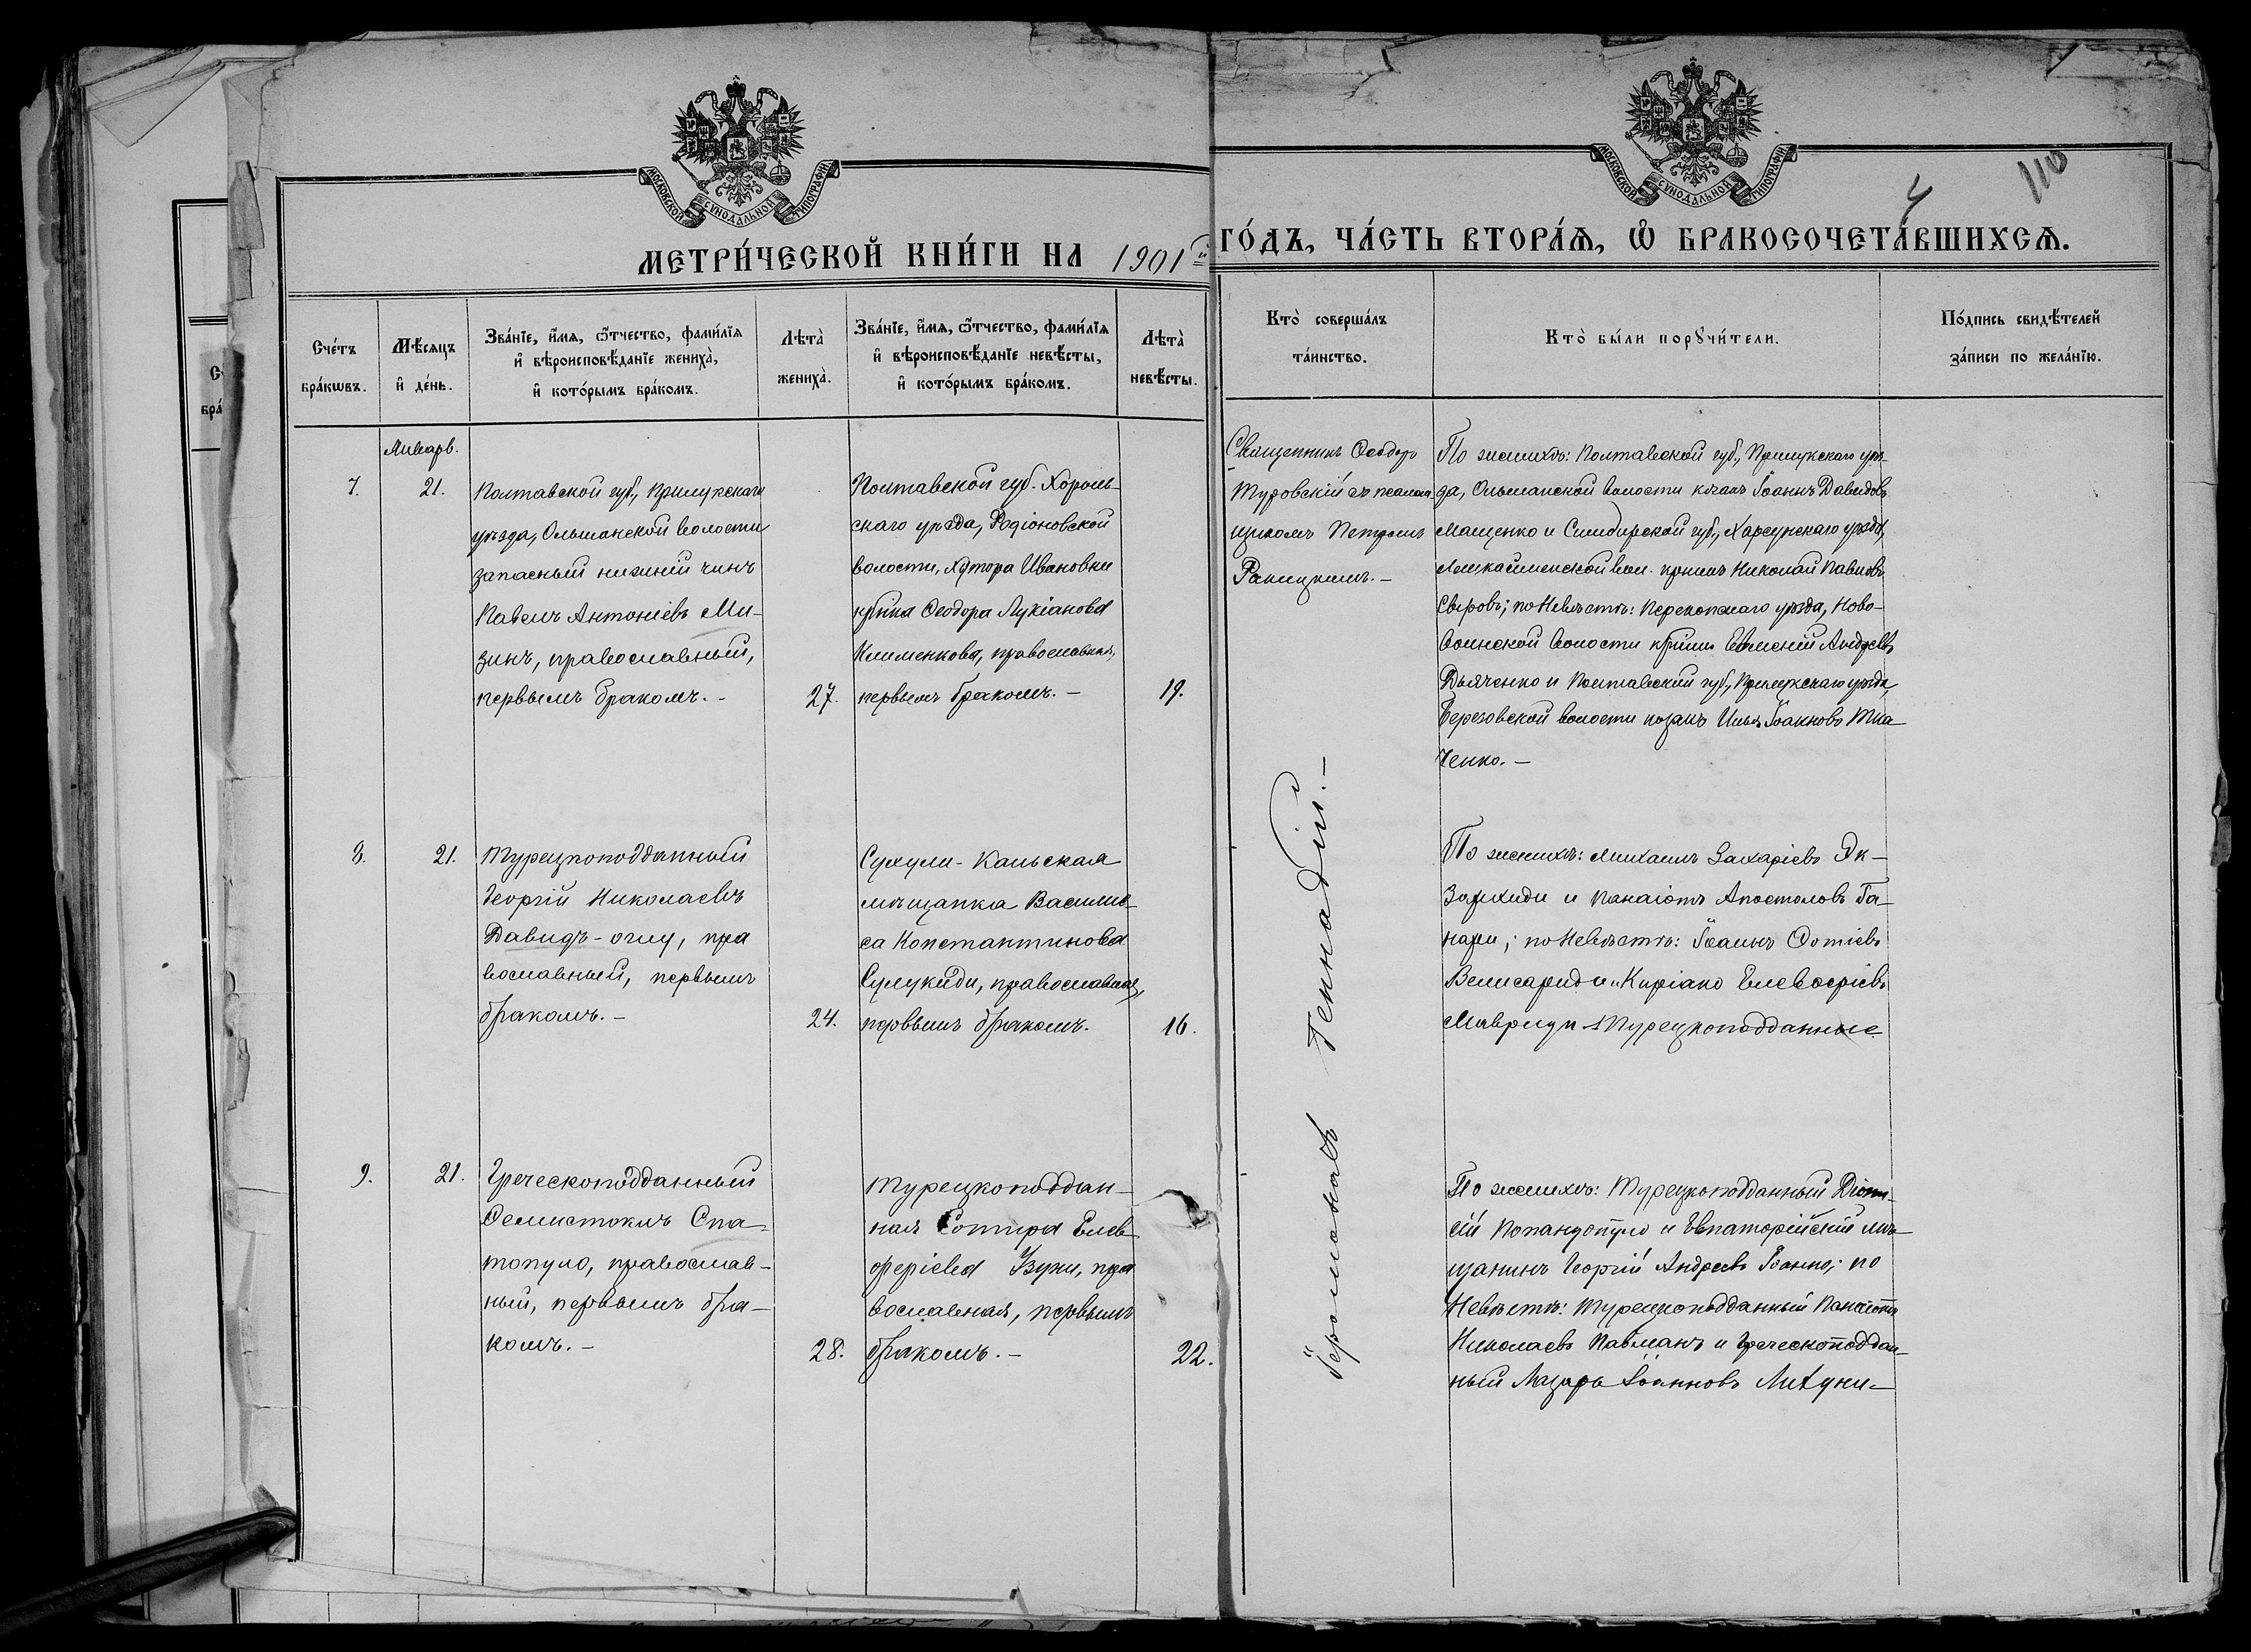 МОСКОВСКОЙ СѴНОДАЛЬНОЙ ТИПОГРАФІИ
МОСКОВСКОЙ СѴНОДАЛЬНОЙ ТИПОГРАФІИ
4
110
МЕТРИ́ЧЕСКОЙ КНИ́ГИ НА 1901й ГО́ДЪ, ЧА́СТЬ ВТОРА́Ѧ, Ѽ БРАКОСОЧЕТА́ВШИХСѦ.
Сче́тъ
бра́кѡвъ.
Мѣ́сяцъ
и҆ де́нь.
Зва́нїе, и҆́мѧ, ѻ҆́тчество, фами́лїѧ
и҆ вѣроисповѣ́данїе жениха̀,
и҆ кото́рымъ бра́комъ.
Лѣта̀
жениха̀.
Зва́нїе, и҆́мѧ, ѻ҆́тчество, фами́лїѧ
и҆ вѣроисповѣ́данїе невѣ́сты,
и҆ кото́рымъ бра́комъ.
Лѣта̀
невѣ́сты.
Кто̀ соверша́лъ
та́инство.
Кто̀ бы́ли порꙋчи́тели.
По́дпись свидѣ́телей
за́писи по жела́нїю.
Январь.
7.
21.
Полтавской губ., Прилукскаго
уѣзда, Ольшанской волости
запасный нижній чинъ
Павелъ Антоніевъ Ми-
зинъ, православный,
первымъ бракомъ.-
27.
Полтавской губ. Хороль-
скаго уѣзда, Родіоновской
волости, хутора Ивановки
Ѳеодора Лукіанова
Клименкова, православная,
первымъ бракомъ.-
19.
Священникъ Ѳеодоръ
Туровскій съ псалом-
щикомъ Петромъ
Ракицкимъ.-
По женихѣ: Полтавской губ., Прилукскаго уѣз-
да, Ольшанской волости Іоаннъ Давидовъ
Мащенко и Симбирской губ., Карсунскаго уѣзда,
Николай Павловъ
по невѣстѣ: Перекопскаго уѣзда, Ново-
Воинской волости Евменій Андреевъ
Дьяченко и Полтавской губ., Прилукскаго уѣзда,
Березовской волости козакъ Илья Іоанновъ Тка-
ченко.-
8.
21.
Турецкоподданный
Георгій Николаевъ
Давидъ-оглу, пра
вославный, первымъ
бракомъ.-
24.
Сухум-Кальская
мѣщанка Василис-
са Константинова
Сулукиди, православная,
первымъ бракомъ.
16.
По женихѣ: Михаилъ Захаріевъ Эк-
и Панаіотъ Апостоловъ Га-
нари; по невѣстѣ: Іоаннъ Фотіевъ
Велисариди и Киріако Елевѳеріевъ
Мавриди Турецкоподданные
9.
21.
Греческоподданный
Ѳемистоклъ Спа-
топуло, православ-
ный, первымъ бра-
комъ.-
28.
Турецкоподдан-
ная Сотира Елев-
феріева Узуни, пра
вославная, первымъ
бракомъ.-
22.
Іеромонахъ Геннадій.-
По женихѣ: Турецкоподданный Діони-
сій Попандопуло и Евпаторійскій мѣ-
щанинъ Георгій Андреевъ Іоанно; по
невѣстѣ: Турецкоподданный Панаіотъ
Николаевъ Павманъ и Греческоподдан-
ный Лазарь Іоанновъ